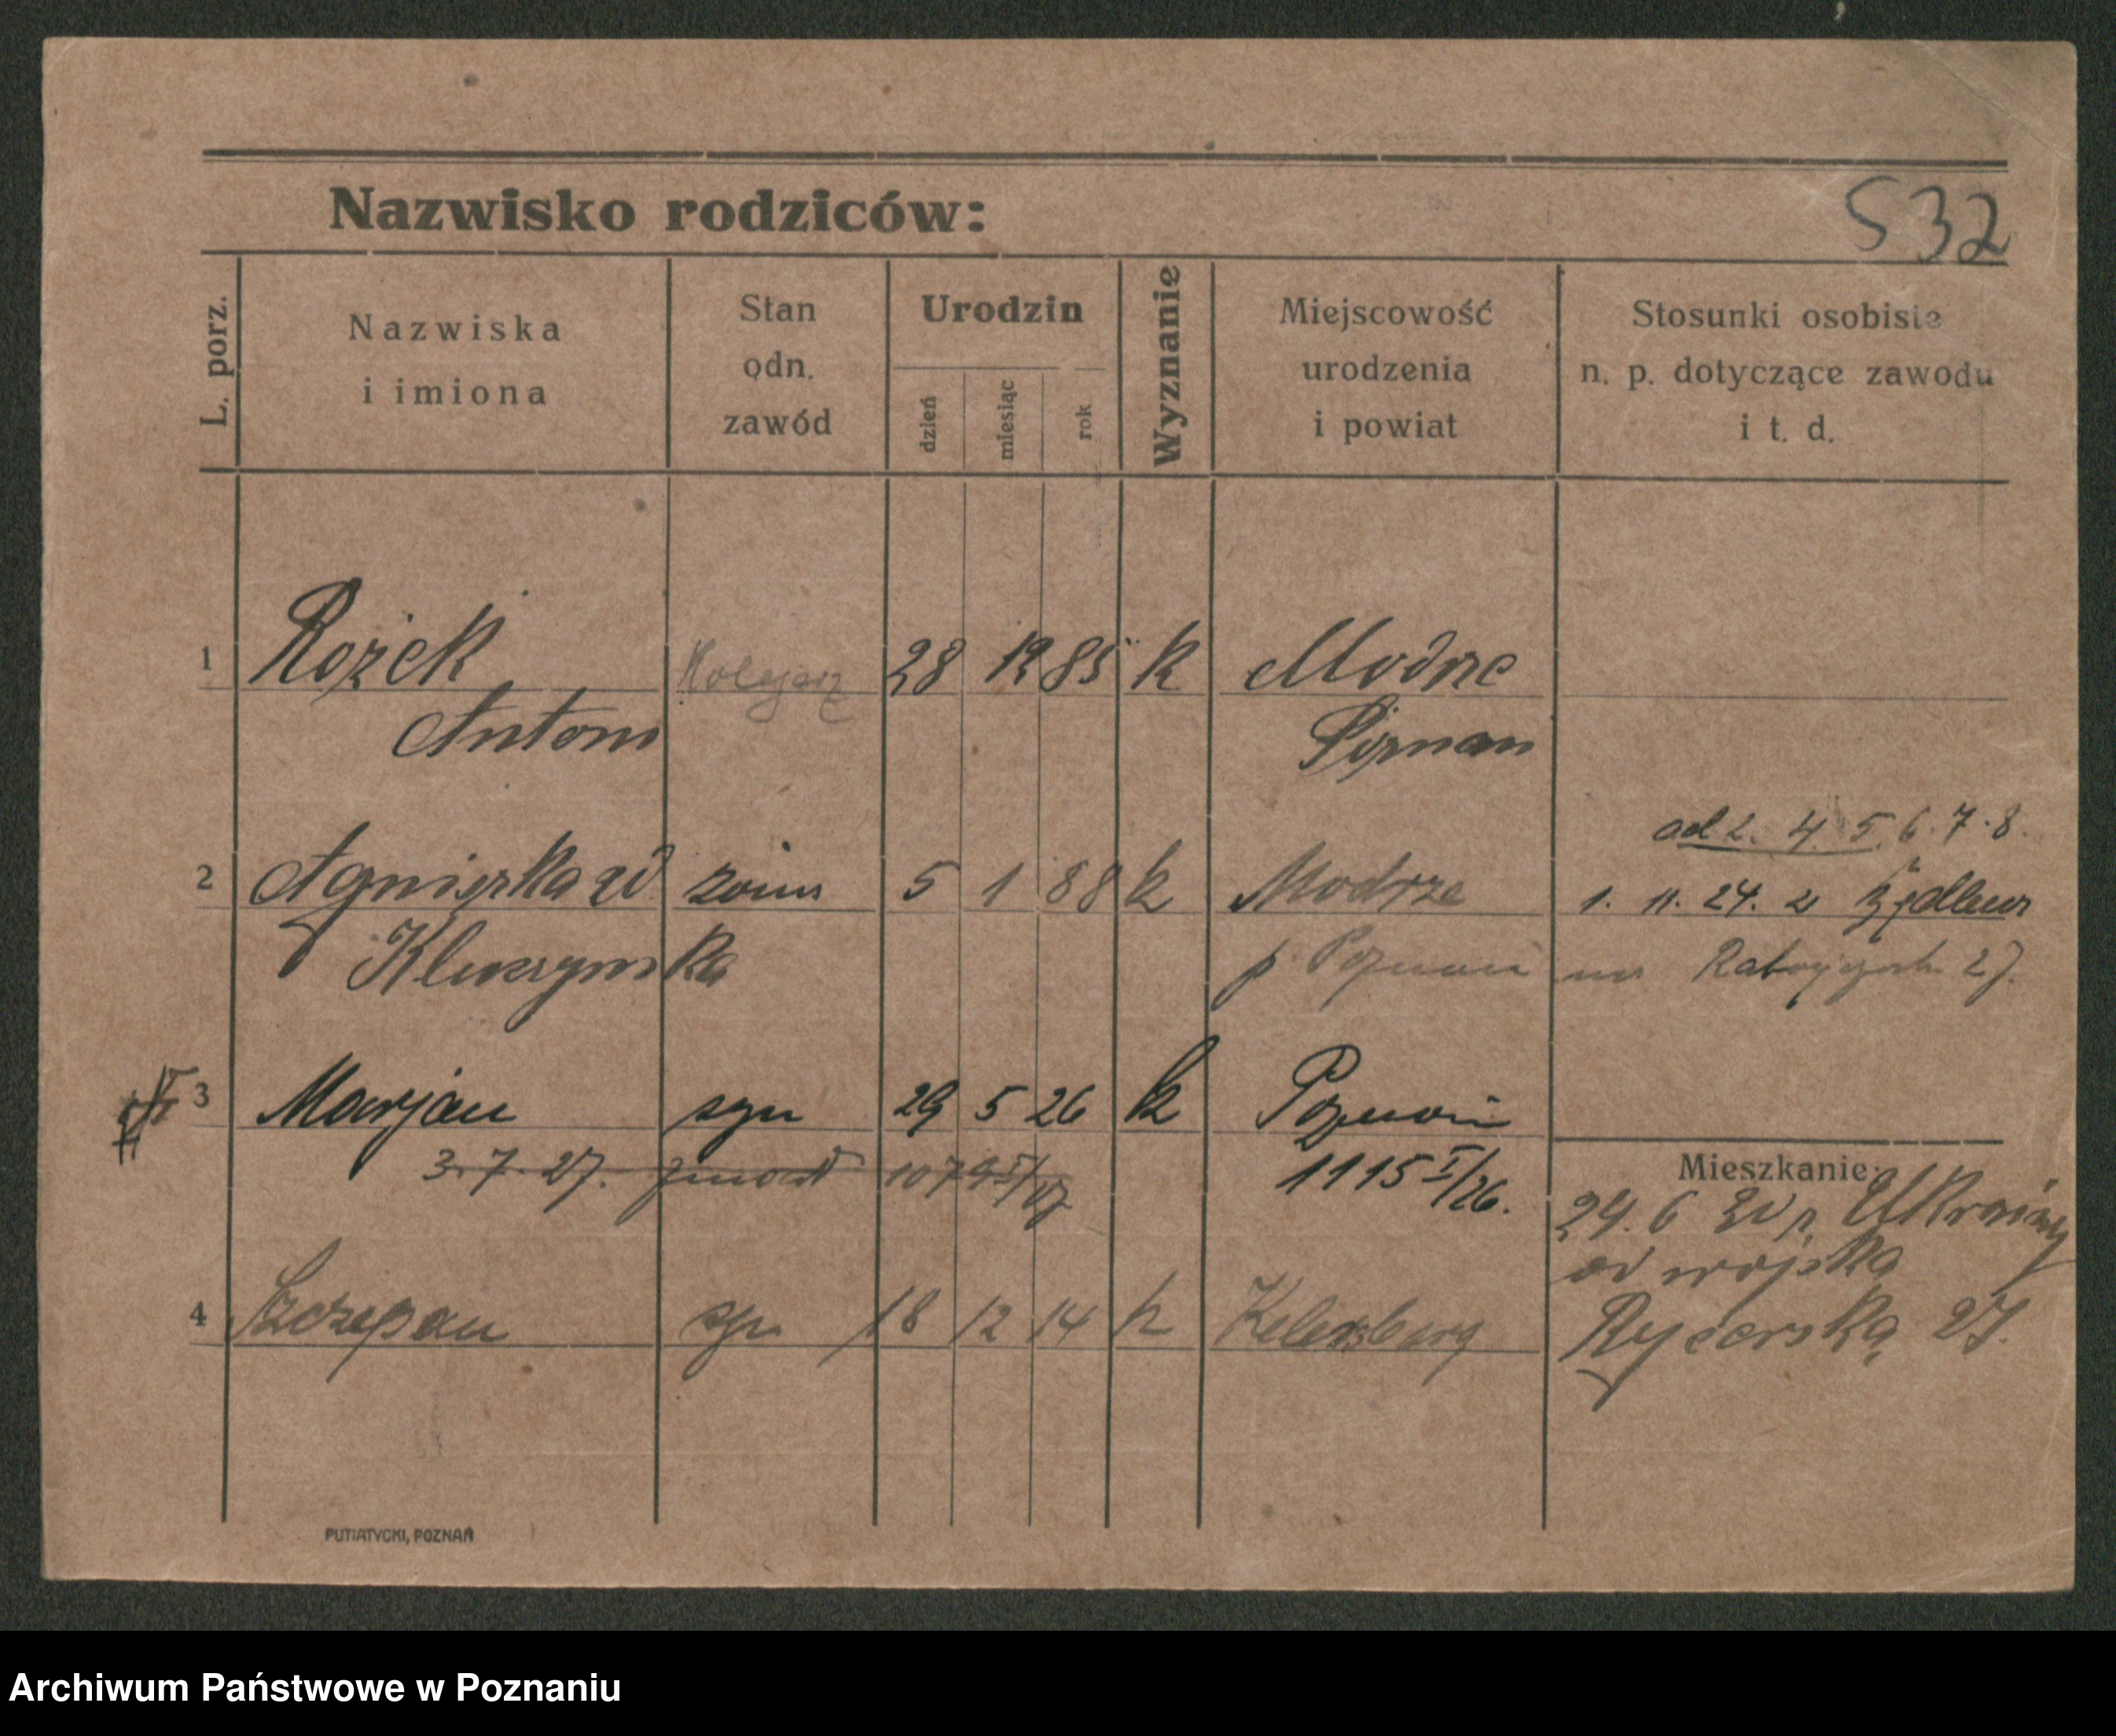 Nazwisko rodziców:
532
L. porz.
Nazwiska
i imiona
Stan
odn.
zawód
Urodzin
dzień
miesiąc
rok
Wyznanie
Miejscowość
urodzenia
i powiat
Stosunki osobiste
n. p. dotyczące zawodu
i t. d.
1 Rożek Kolejarz 28 12 85 k Modrze
Antoni Poznań
ad 2. 4. 5. 6. 7. 8.
2 Agnieszka żona 5 1 88 k Modrze 1. 11. 24. z
p. Poznań 27.
3 Marjan syn 29 5 26 k Poznań
3. 7. 27. zmarł 1079 I/27 1115 I/26.
Mieszkanie:
24. 6 Ukrainy
od wojska
4 Szczepan syn 18 12 14 k Rycerska 27.
PUTIATYCKI, POZNAŃ
Archiwum Państwowe w Poznaniu